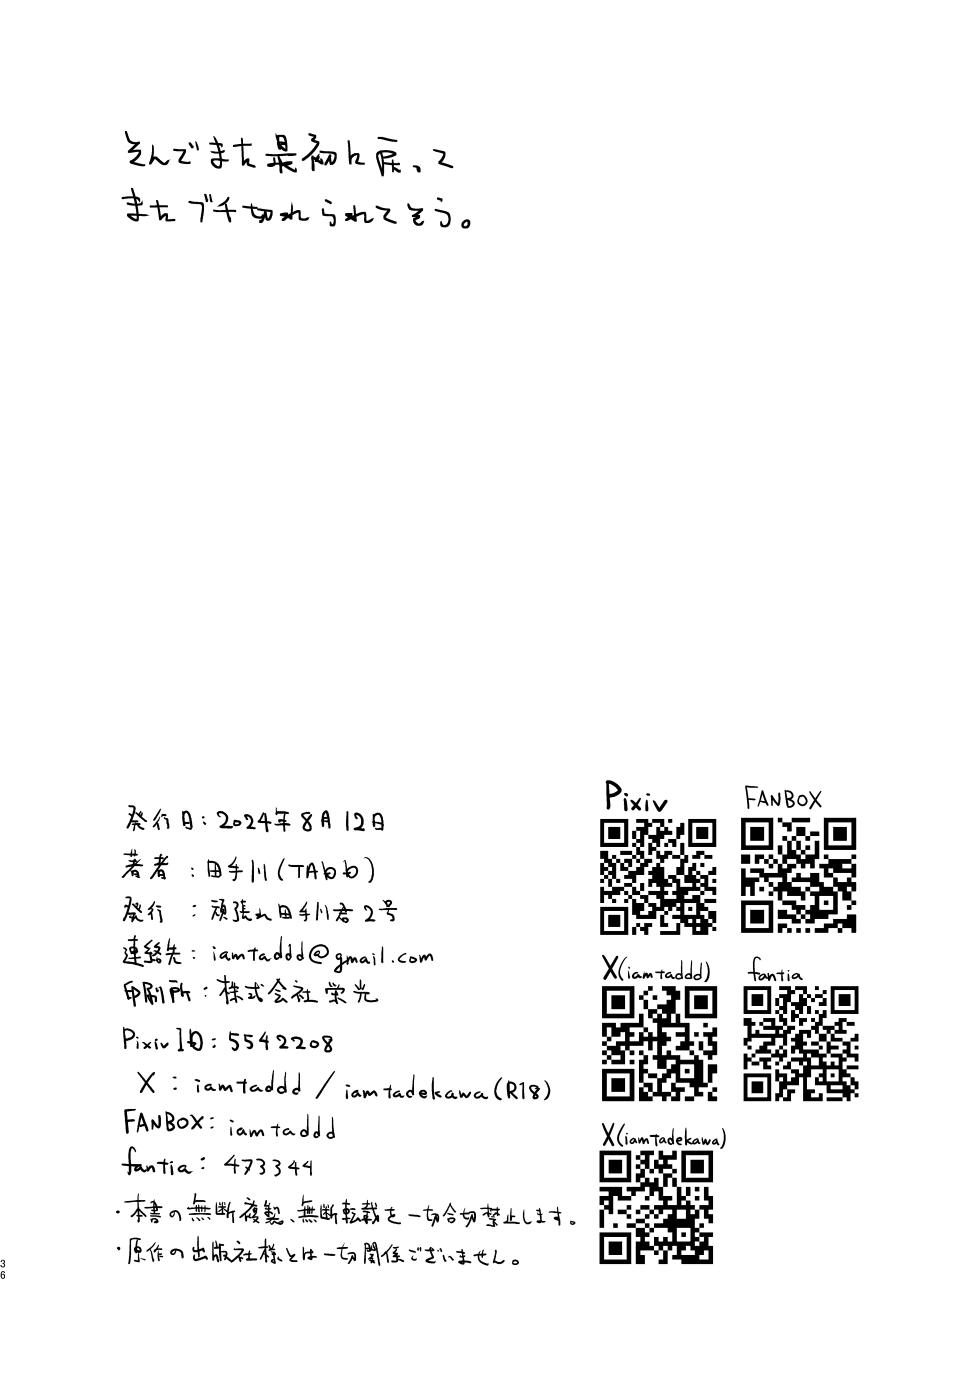 そんでまた最初に戻って
またブチ切れられてそう。
Pixiv
FANBOX
発行日：2024年8月12日
著者：田手川（TAbb）
発行：頑張れ田手川君2号
連絡先：iamtaddd@gmail.com
印刷所：株式会社栄光
Pixiv ID：5542208
X：iamtaddd / iamtadekawa（R18）
FANBOX：iamtaddd
fantia：473344
・本書の無断複製、無断転載を一切合切禁止します。
・原作の出版社様とは一切関係ございません。
X（iamtaddd）
fantia
X（iamtadekawa）
36